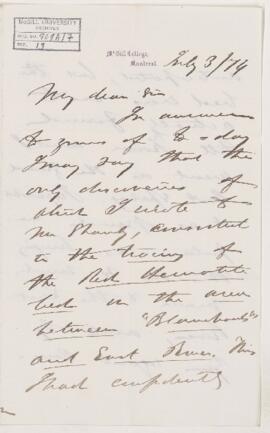 McGILL UNIVERSITY
ARCHIVES
ACC. NO. 909A17
REF. 19
McGill College,
Montreal.
July 3/74
My dear Sir
In answer
to yours of to day
I may say that the
only discoveries of
which I wrote to
Mr Shanly, consisted
in the tracing of
the Red Hematite
bed in the area
between "Blanchard"
and East River. This
I had confidently